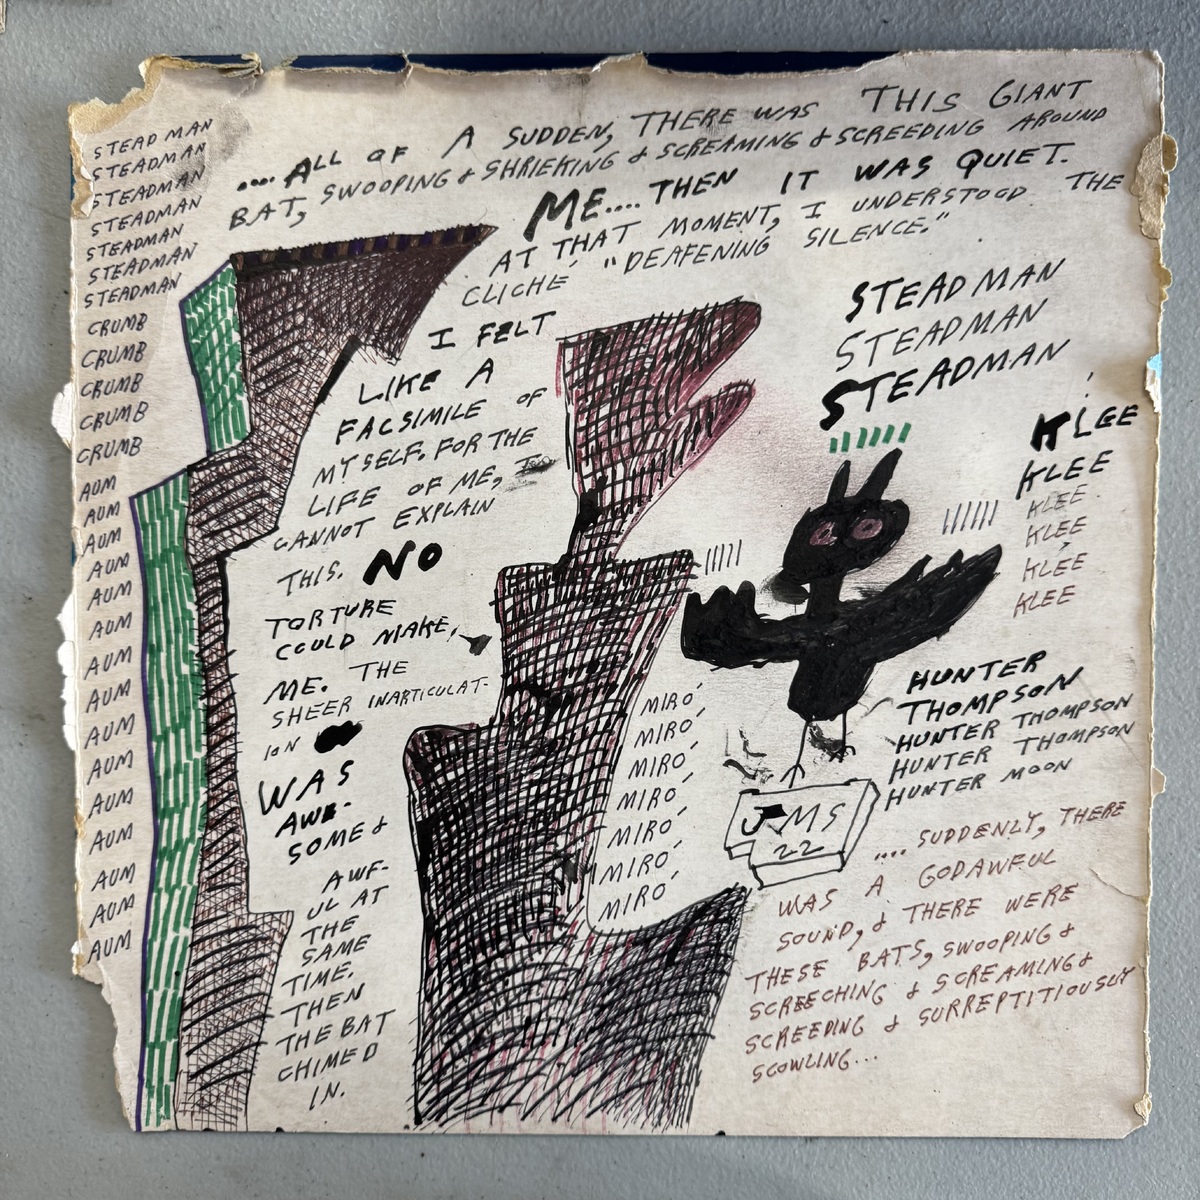 .... ALL OF A SUDDEN, THERE WAS THIS GIANT
BAT, SWOOPING & SHRIEKING & SCREAMING & SCREEDING AROUND
ME.... THEN IT WAS QUIET.
AT THAT MOMENT, I UNDERSTOOD THE
CLICHÉ "DEAFENING SILENCE."
I FELT
LIKE A
FACSIMILE OF
MYSELF. FOR THE
LIFE OF ME, I
CANNOT EXPLAIN
THIS. NO
TORTURE
COULD MAKE
ME. THE
SHEER INARTICULAT-
ION
WAS
AWE-
SOME &
AWF-
UL AT
THE
SAME
TIME.
THEN
THE BAT
CHIMED
IN.
STEADMAN
STEADMAN
STEADMAN
STEADMAN
STEADMAN
STEADMAN
STEADMAN
CRUMB
CRUMB
CRUMB
CRUMB
CRUMB
AUM
AUM
AUM
AUM
AUM
AUM
AUM
AUM
AUM
AUM
AUM
AUM
AUM
AUM
AUM
STEADMAN
STEADMAN
STEADMAN
KLEE
KLEE
KLEE
KLEE
KLEE
KLEE
MIRÓ
MIRÓ
MIRÓ
MIRÓ
MIRÓ
MIRÓ
MIRÓ
HUNTER
THOMPSON
HUNTER THOMPSON
HUNTER THOMPSON
HUNTER MOON
JMS
22
.... SUDDENLY, THERE
WAS A GODAWFUL
SOUND, & THERE WERE
THESE BATS, SWOOPING &
SCREECHING & SCREAMING &
SCREEDING & SURREPTITIOUSLY
SCOWLING...